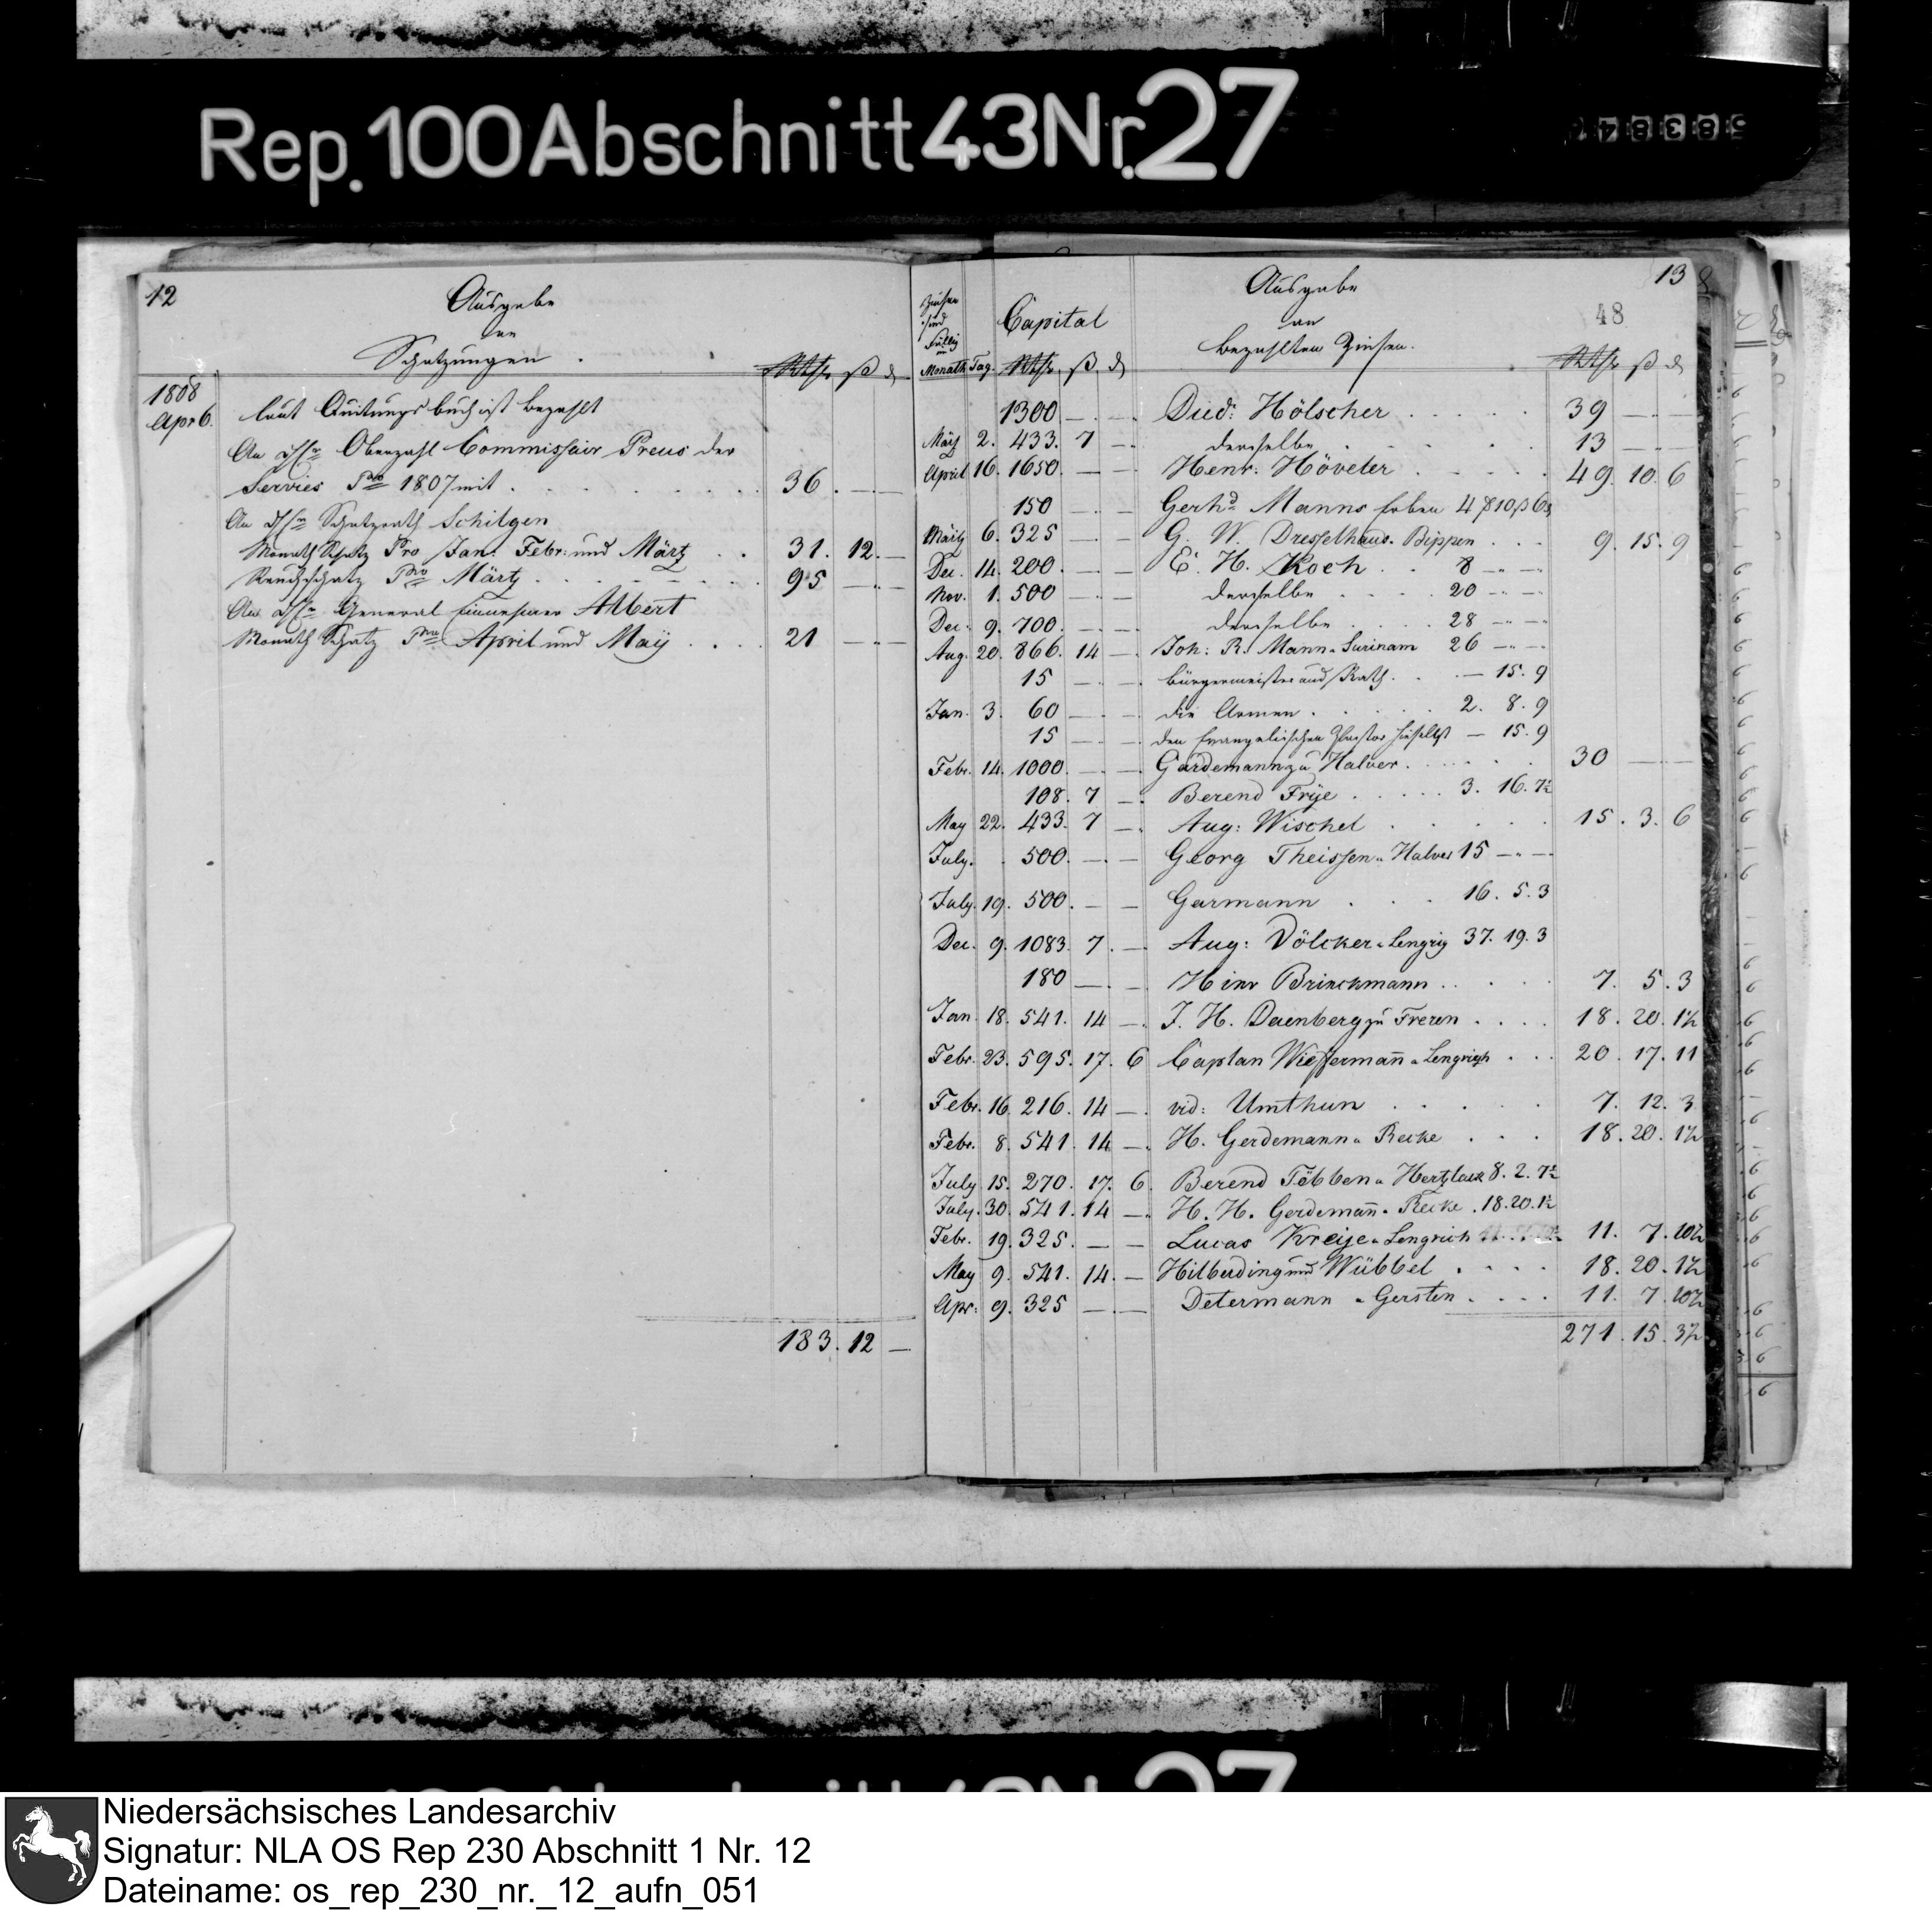 Rep. 100 Abschnitt 43 Nr. 27
12
Ausgabe
an
Schatzungen.
Rthlr ß d
1808
Apr 6. laut Quitungs buch ist bezahlt
An Hn Oberzahl Commissair Preus der
Servies Pro 1807 mit . . . 36. — —
An Hn Schatzrath Schilgen
Monath Schatz Pro Jan: Febr: und Märtz . . 31. 12. —
Rauchschatz Pro Märtz . . . 95 — —
An Hn General Albert
Monath Schatz Pro April und Maÿ . . . 21 — —
183. 12 —
13
48
Ausgabe
an
bezahlten Zinsen.
Zinsen
sind
fällig
im
Monath Tag.
Capital
Rthlr ß d
Rthlr ß d
1300 — — Died: Hölscher . . . 39 — —
Märtz 2. 433. 7 — derselbe . . . 13 — —
April 16. 1650. — — Henr: Höveler . . . 49. 10. 6
150 — — Gerhd Manns Erben 4 10 ß 6 d
Märtz 6. 325 — — G. W. Dresselhaus. Bippen . . . 9. 15. 9
Dec. 14. 200. — — E. H. Koch . . 8 — —
Nov. 1. 500 — — derselbe . . . 20 — —
Dec. 9. 700. — — derselbe . . . 28 — —
Aug. 20. 866. 14 — Joh: R. Mann. Surinam 26 — —
15 — — Bürgermeister und Rath. . . — 15. 9
Jan. 3. 60 — — die Armen . . . 2. 8. 9
15 — — den Evangelischen Pastor hieselbst — 15. 9
Febr. 14. 1000. — — Gärdemann zu Halver. . . . 30 — —
108. 7 — Berend Frÿe . . . 3. 16. 7½
May 22. 433. 7 — Aug: Wischel . . . 15. 3. 6
July. 500. — — Georg Theissen a Halver 15 — —
July. 19. 500. — — Garmann . . . 16. 5. 3
Dec. 9. 1083. 7. — Aug: Völcker a Lengrig 37. 19. 3
180 — — Hinr Brinckmann . . . 7. 5. 3
Jan. 18. 541. 14 — J. H. Daenberg zu Freren . . . 18. 20. 1½
Febr. 23. 595. 17. 6 Caplan Wiessermañ a Lengrigh . . . 20. 17. 11
Febr. 16. 216. 14 — vid: Umthun . . . 7. 12. 3
Febr. 8. 541. 14 — H. Gerdemann a Recke . . . 18. 20. 1½
July 15. 270. 17. 6. Berend Többen a Hertzlack 8. 2. 7½
July. 30. 541. 14 — H. H. Gerdemañ a Recke . 18. 20. 1½
Febr. 19. 325. — — Lucas Kreÿe a Lengrich 11. 7. 10½
May 9. 541. 14. — Hilberding und Wübbel . . . 18. 20. 1½
Apr: 9. 325 — — Determann a Gersten . . . 11. 7. 10½
271. 15. 3½
Niedersächsisches Landesarchiv
Signatur: NLA OS Rep 230 Abschnitt 1 Nr. 12
Dateiname: os_rep_230_nr._12_aufn_051